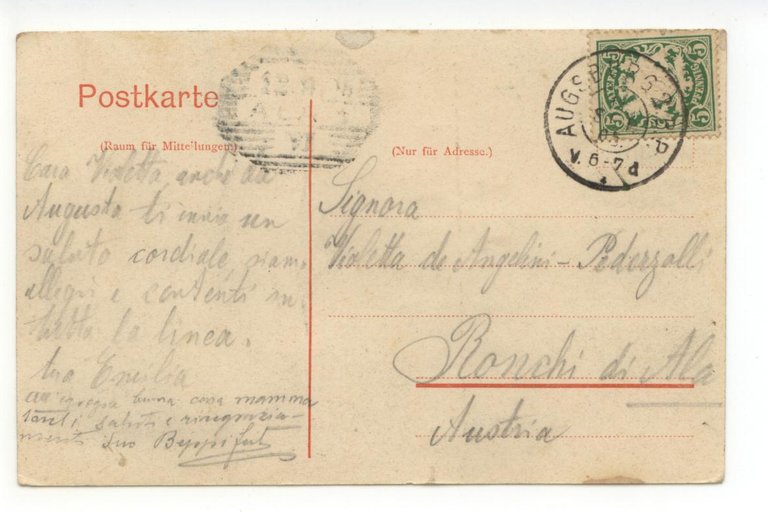 Postkarte
(Raum für Mitteilungen.)
Cara Violetta anche da
Augusta ti invio un
saluto cordiale, siamo
allegri e contenti su
tutta la linea.
tua Emilia
buona cara mamma
tanti saluti e ringrazia-
menti suo Beppi
ALA
(Nur für Adresse.)
AUGSBURG 2
V. 6-7
5 PFENNIG 5
Signora
Violetta de Angelini - Pederzolli
Ronchi di Ala
Austria